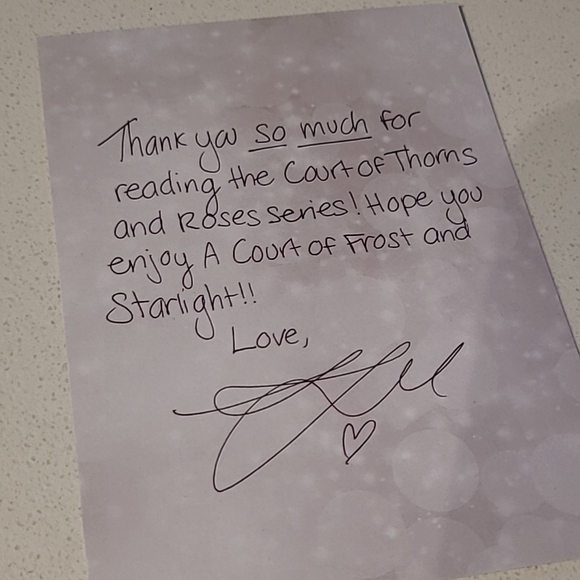 Thank you so much for
reading the Court of Thorns
and Roses series! Hope you
enjoy A Court of Frost and
Starlight!!
Love,